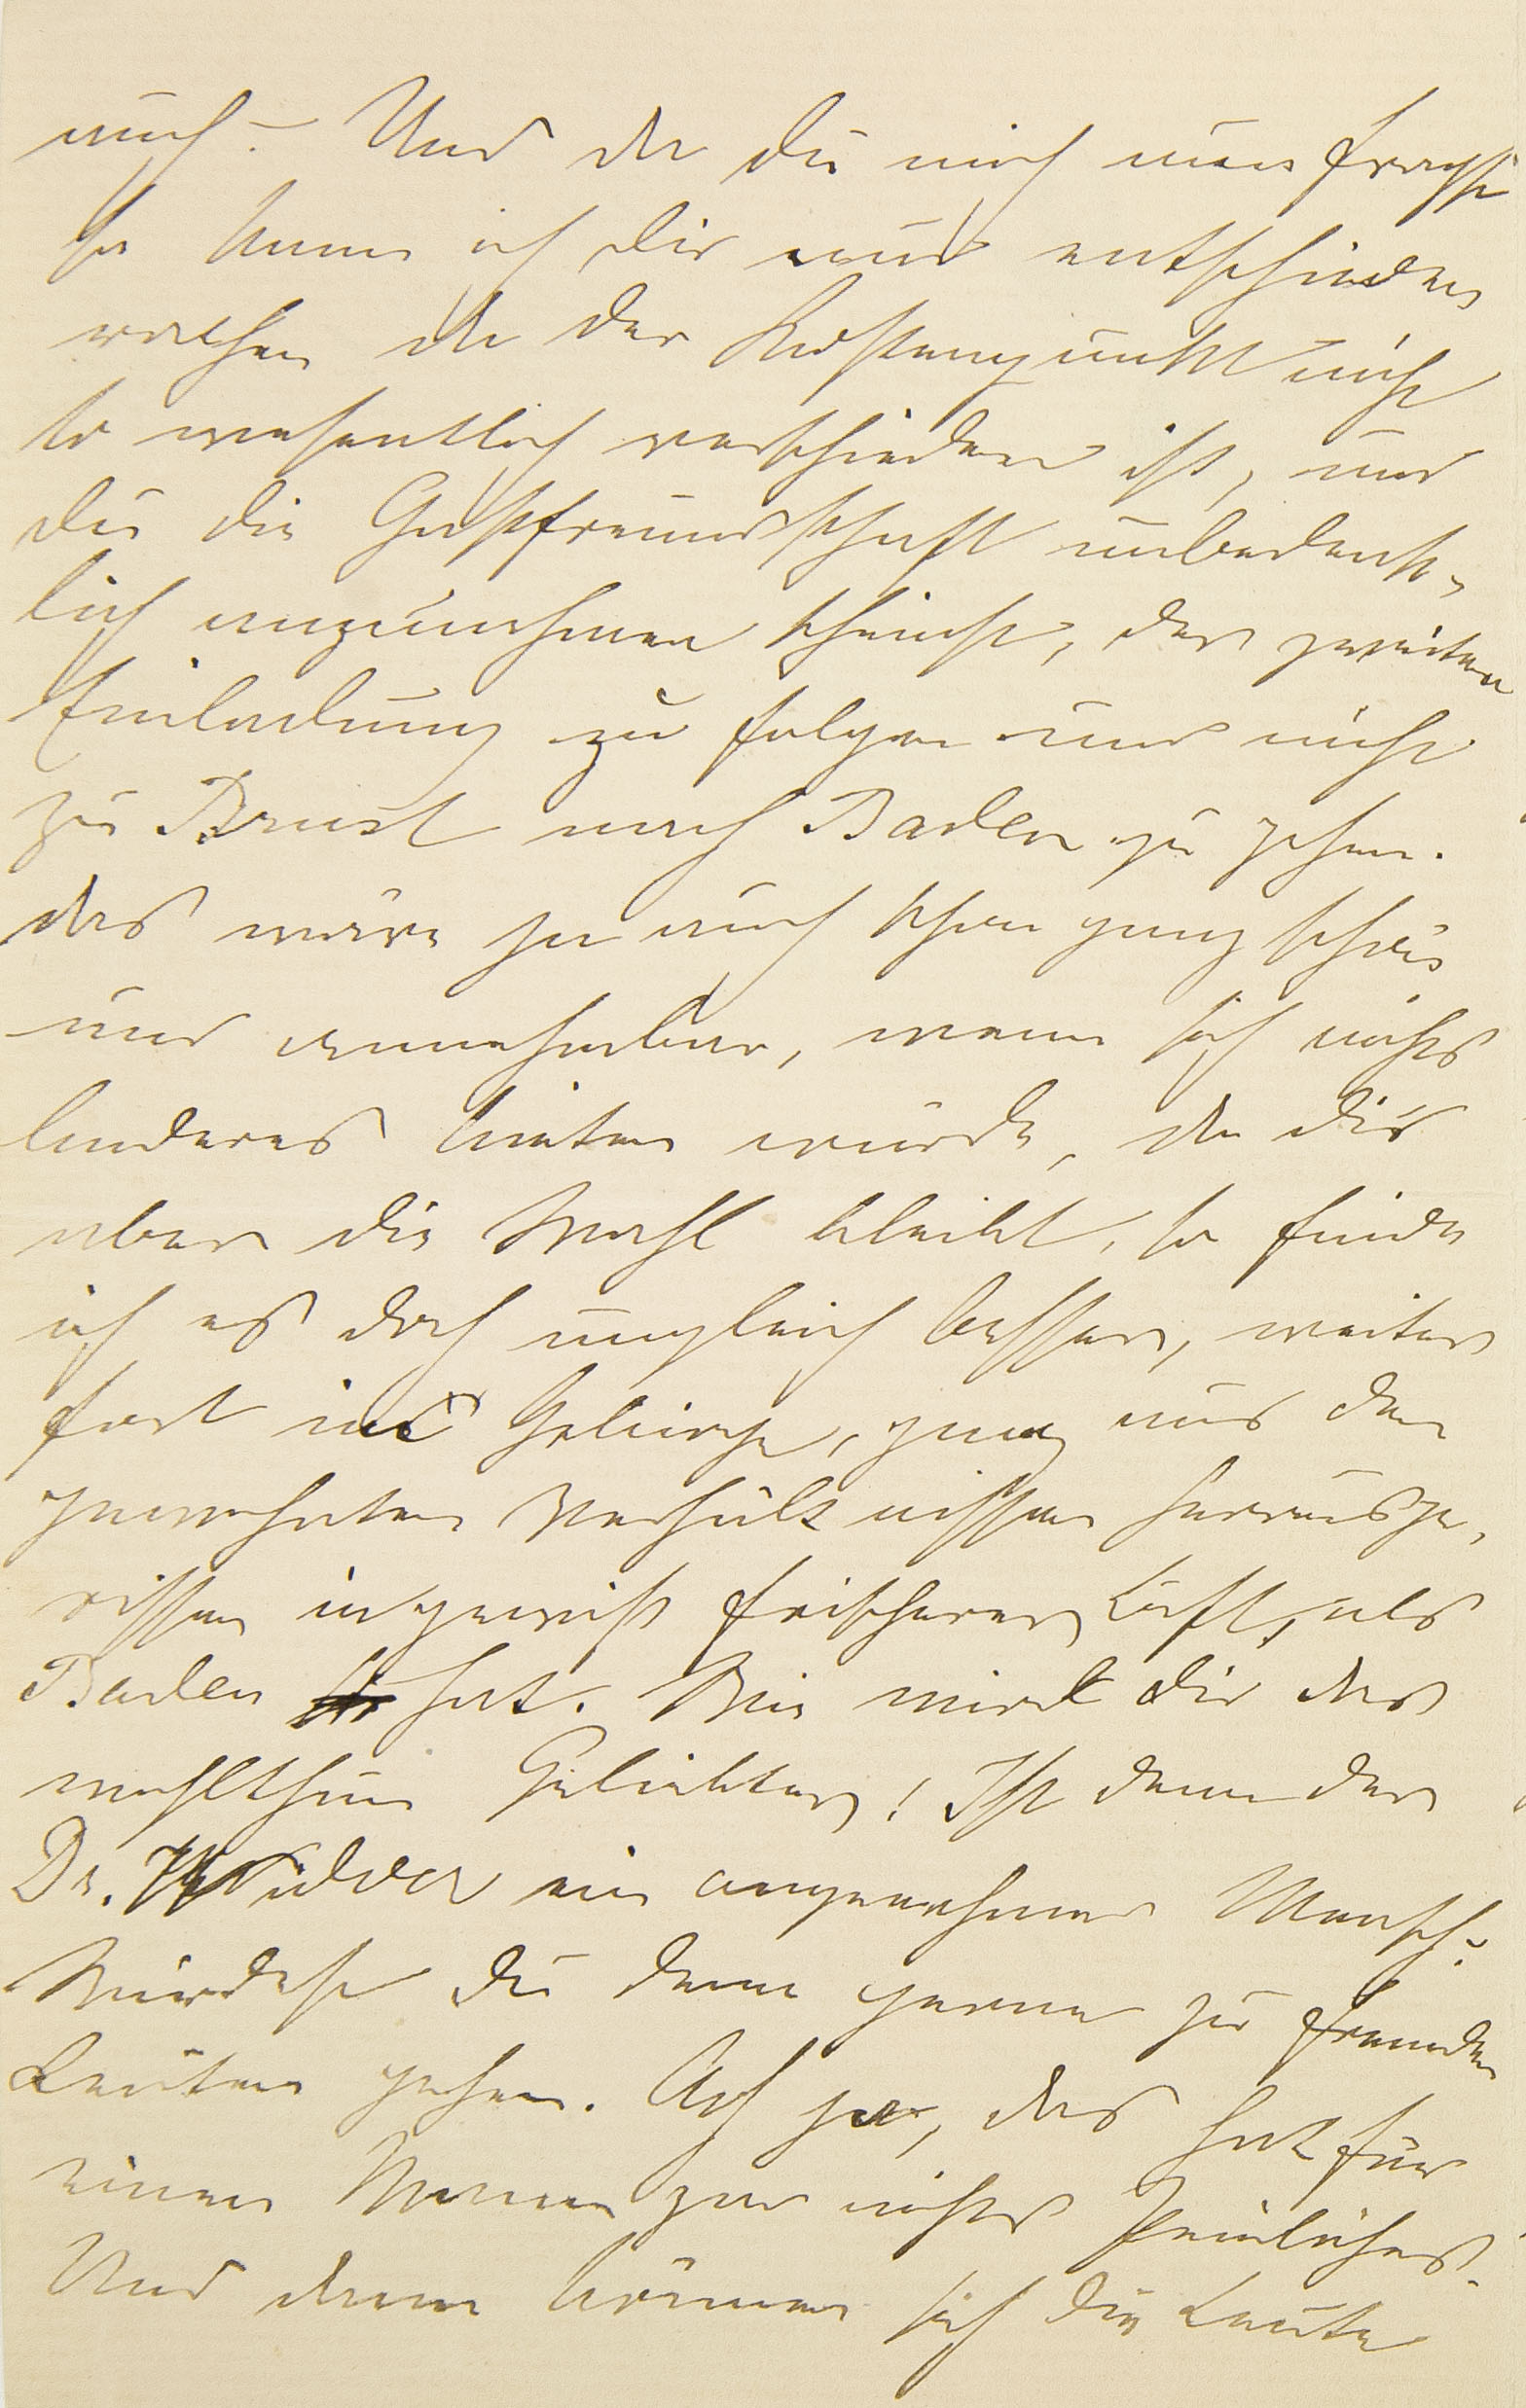 auch. – Und da du mich nun fragst
so kann ich dir nur entschieden
rathen da der Kostenpunkt nicht
so wesentlich verschieden ist, und
du die Gastfreundschaft unbedenk-
lich anzunehmen scheinst, der zweiten
Einladung zu folgen und nicht
zu Brust nach Baden zu gehen.
das wäre ja auch schon ganz schön
und annehmbar, wenn sich nichts
anderes bieten würde, da dir
aber die Wahl bleibt, so finde
ich es doch ungleich besser, weiter
fort ins Gebirge, ganz aus den
gewohnten Verhältnissen herausge-
rissen in gewiß frischerer Luft, als
Baden hat. Wie wird dir das
wohlthun Geliebter! Ist denn der
Dr. ein angenehmer Mensch?
Würdest du denn gerne zu fremden
Leuten gehen. Ach ja, das hat für
einen Mann gar nichts Peinliches.
Und dann können sich die Leute